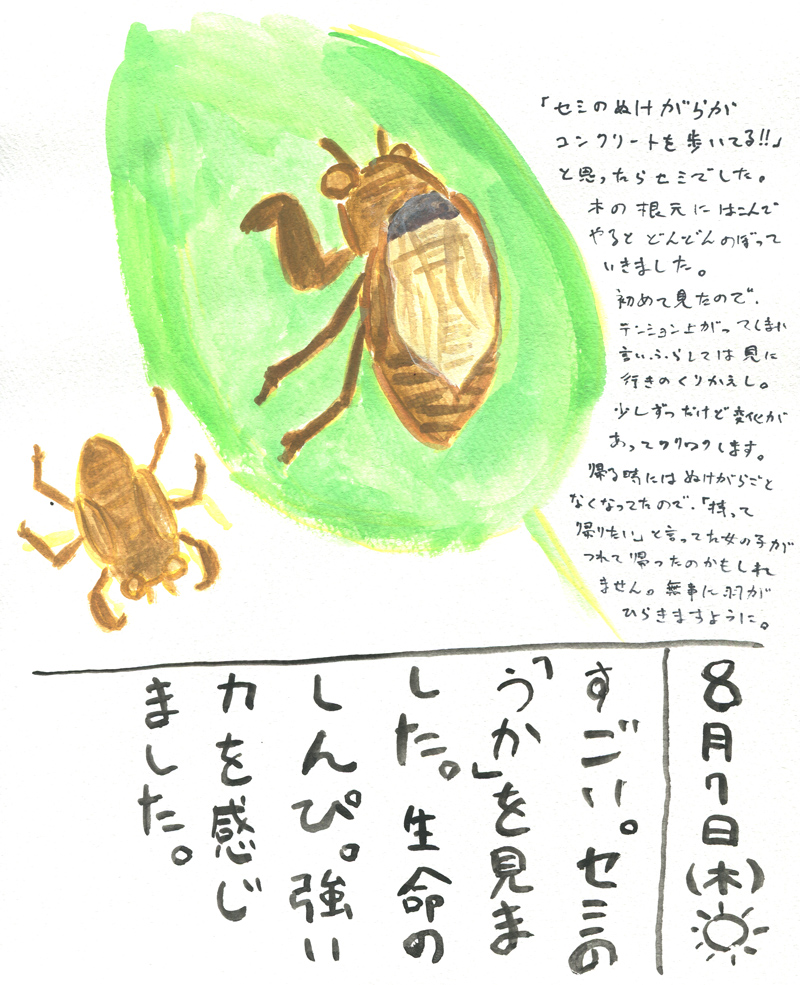 「セミのぬけがらが
コンクリートを歩いてる!!」
と思ったらセミでした。
木の根元にはこんで
やるとどんどんのぼって
いきました。
初めて見たので、
テンション上がってしまい
言いふらしては見に
行きのくりかえし。
少しずつだけど変化が
あってワクワクします。
帰る時にはぬけがらごと
なくなってたので、「持って
帰りたい」と言ってた女の子が
つれて帰ったのかもしれ
ません。無事に羽が
ひらきますように。
8月7日(木)
すごい。セミの
「うか」を見ま
した。生命の
しんぴ。強い
力を感じ
ました。